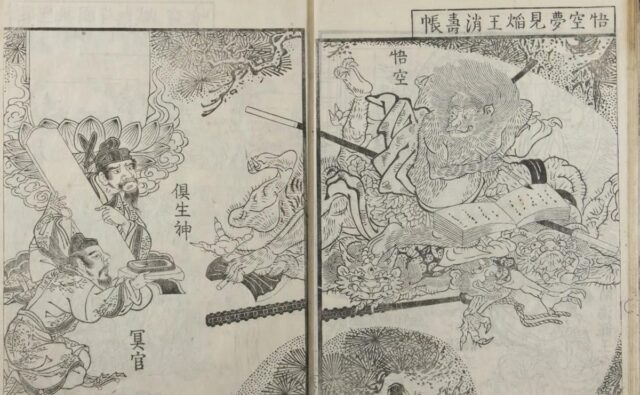 悟空夢見焰王消壽帳
悟空
俱生神
冥官